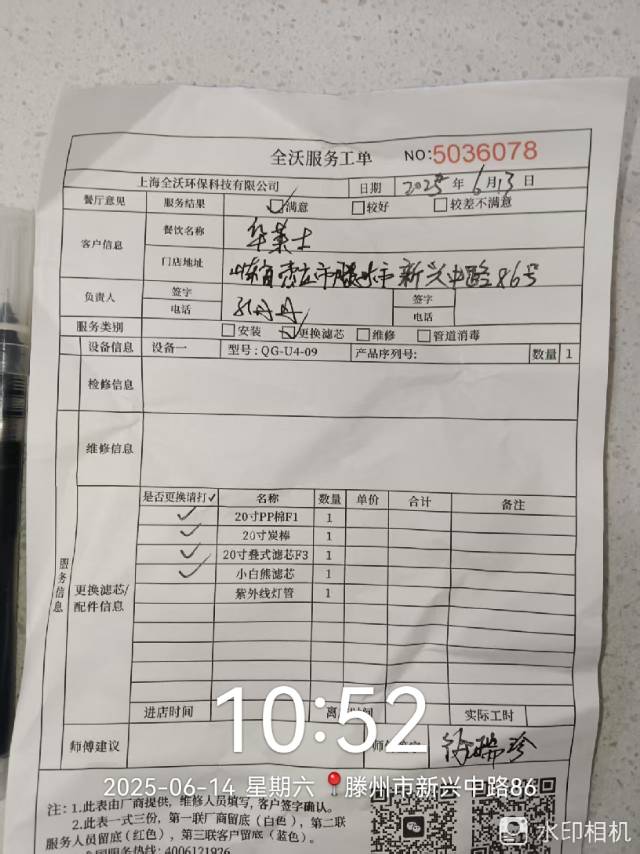 全沃服务工单 NO:5036078
上海全沃环保科技有限公司 日期 2025年6月13日
餐厅意见 服务结果 满意 较好 较差不满意
客户信息 餐饮名称 华莱士
门店地址 山东省枣庄市滕州市新兴中路86号
负责人 签字 电话 孔丹丹 签字 电话
服务类别 安装 更换滤芯 维修 管道消毒
设备信息 设备一 型号:QG-U4-09 产品序列号: 数量 1
检修信息
维修信息
服务信息
更换滤芯/配件信息
是否更换请打✓ 名称 数量 单价 合计 备注
✓ 20寸PP棉F1 1
✓ 20寸炭棒 1
✓ 20寸叠式滤芯F3 1
✓ 小白熊滤芯 1
紫外线灯管 1
进店时间 离 时间 实际工时
10:52
师傅建议 师 徐瑞珍
2025-06-14 星期六 滕州市新兴中路86
注:1.此表由厂商提供,维修人员填写,客户签字确认。
2.此表一式三份,第一联厂商留底(白色),第二联
服务人员留底(红色),第三联客户留底(蓝色)。
全国服务热线:4006121926
水印相机